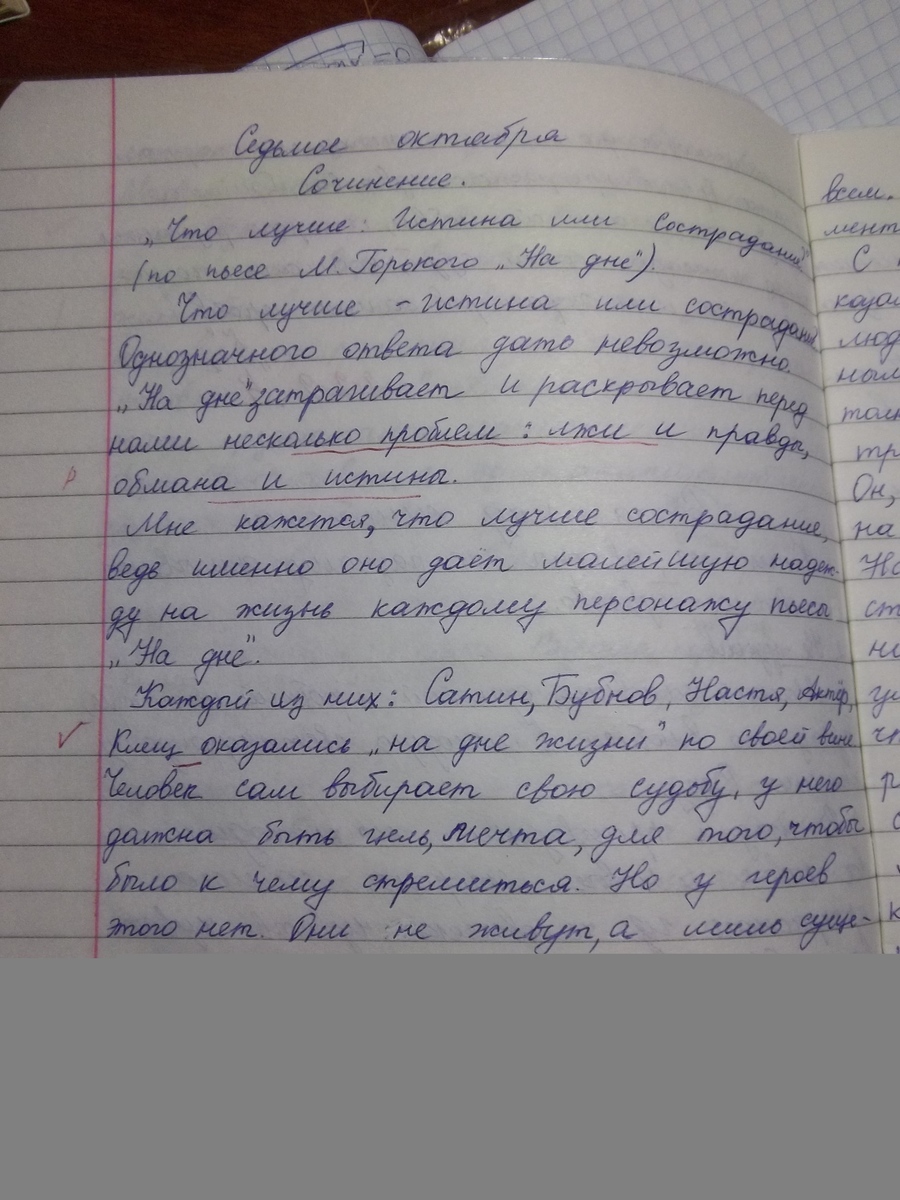 Седьмое октября
Сочинение.
„Что лучше: Истина или Сострадание"
(по пьесе М. Горького „На дне").
Что лучше – истина или сострадание
Однозначного ответа дать невозможно.
„На дне" затрагивает и раскрывает перед
нами несколько проблем: лжи и правды,
р обмана и истины.
Мне кажется, что лучше сострадание,
ведь именно оно даёт малейшую надеж-
ду на жизнь каждому персонажу пьесы
„На дне".
Каждый из них: Сатин, Бубнов, Настя, Актёр,
Клещ оказались „на дне жизни" по своей вине.
Человек сам выбирает свою судьбу, у него
должна быть цель, мечта, для того, чтобы
было к чему стремиться. Но у героев
этого нет. Они не живут, а лишь суще-
всем.
мент
С
казал
люд
ным
толь
тр
Он,
на
На
ст
на